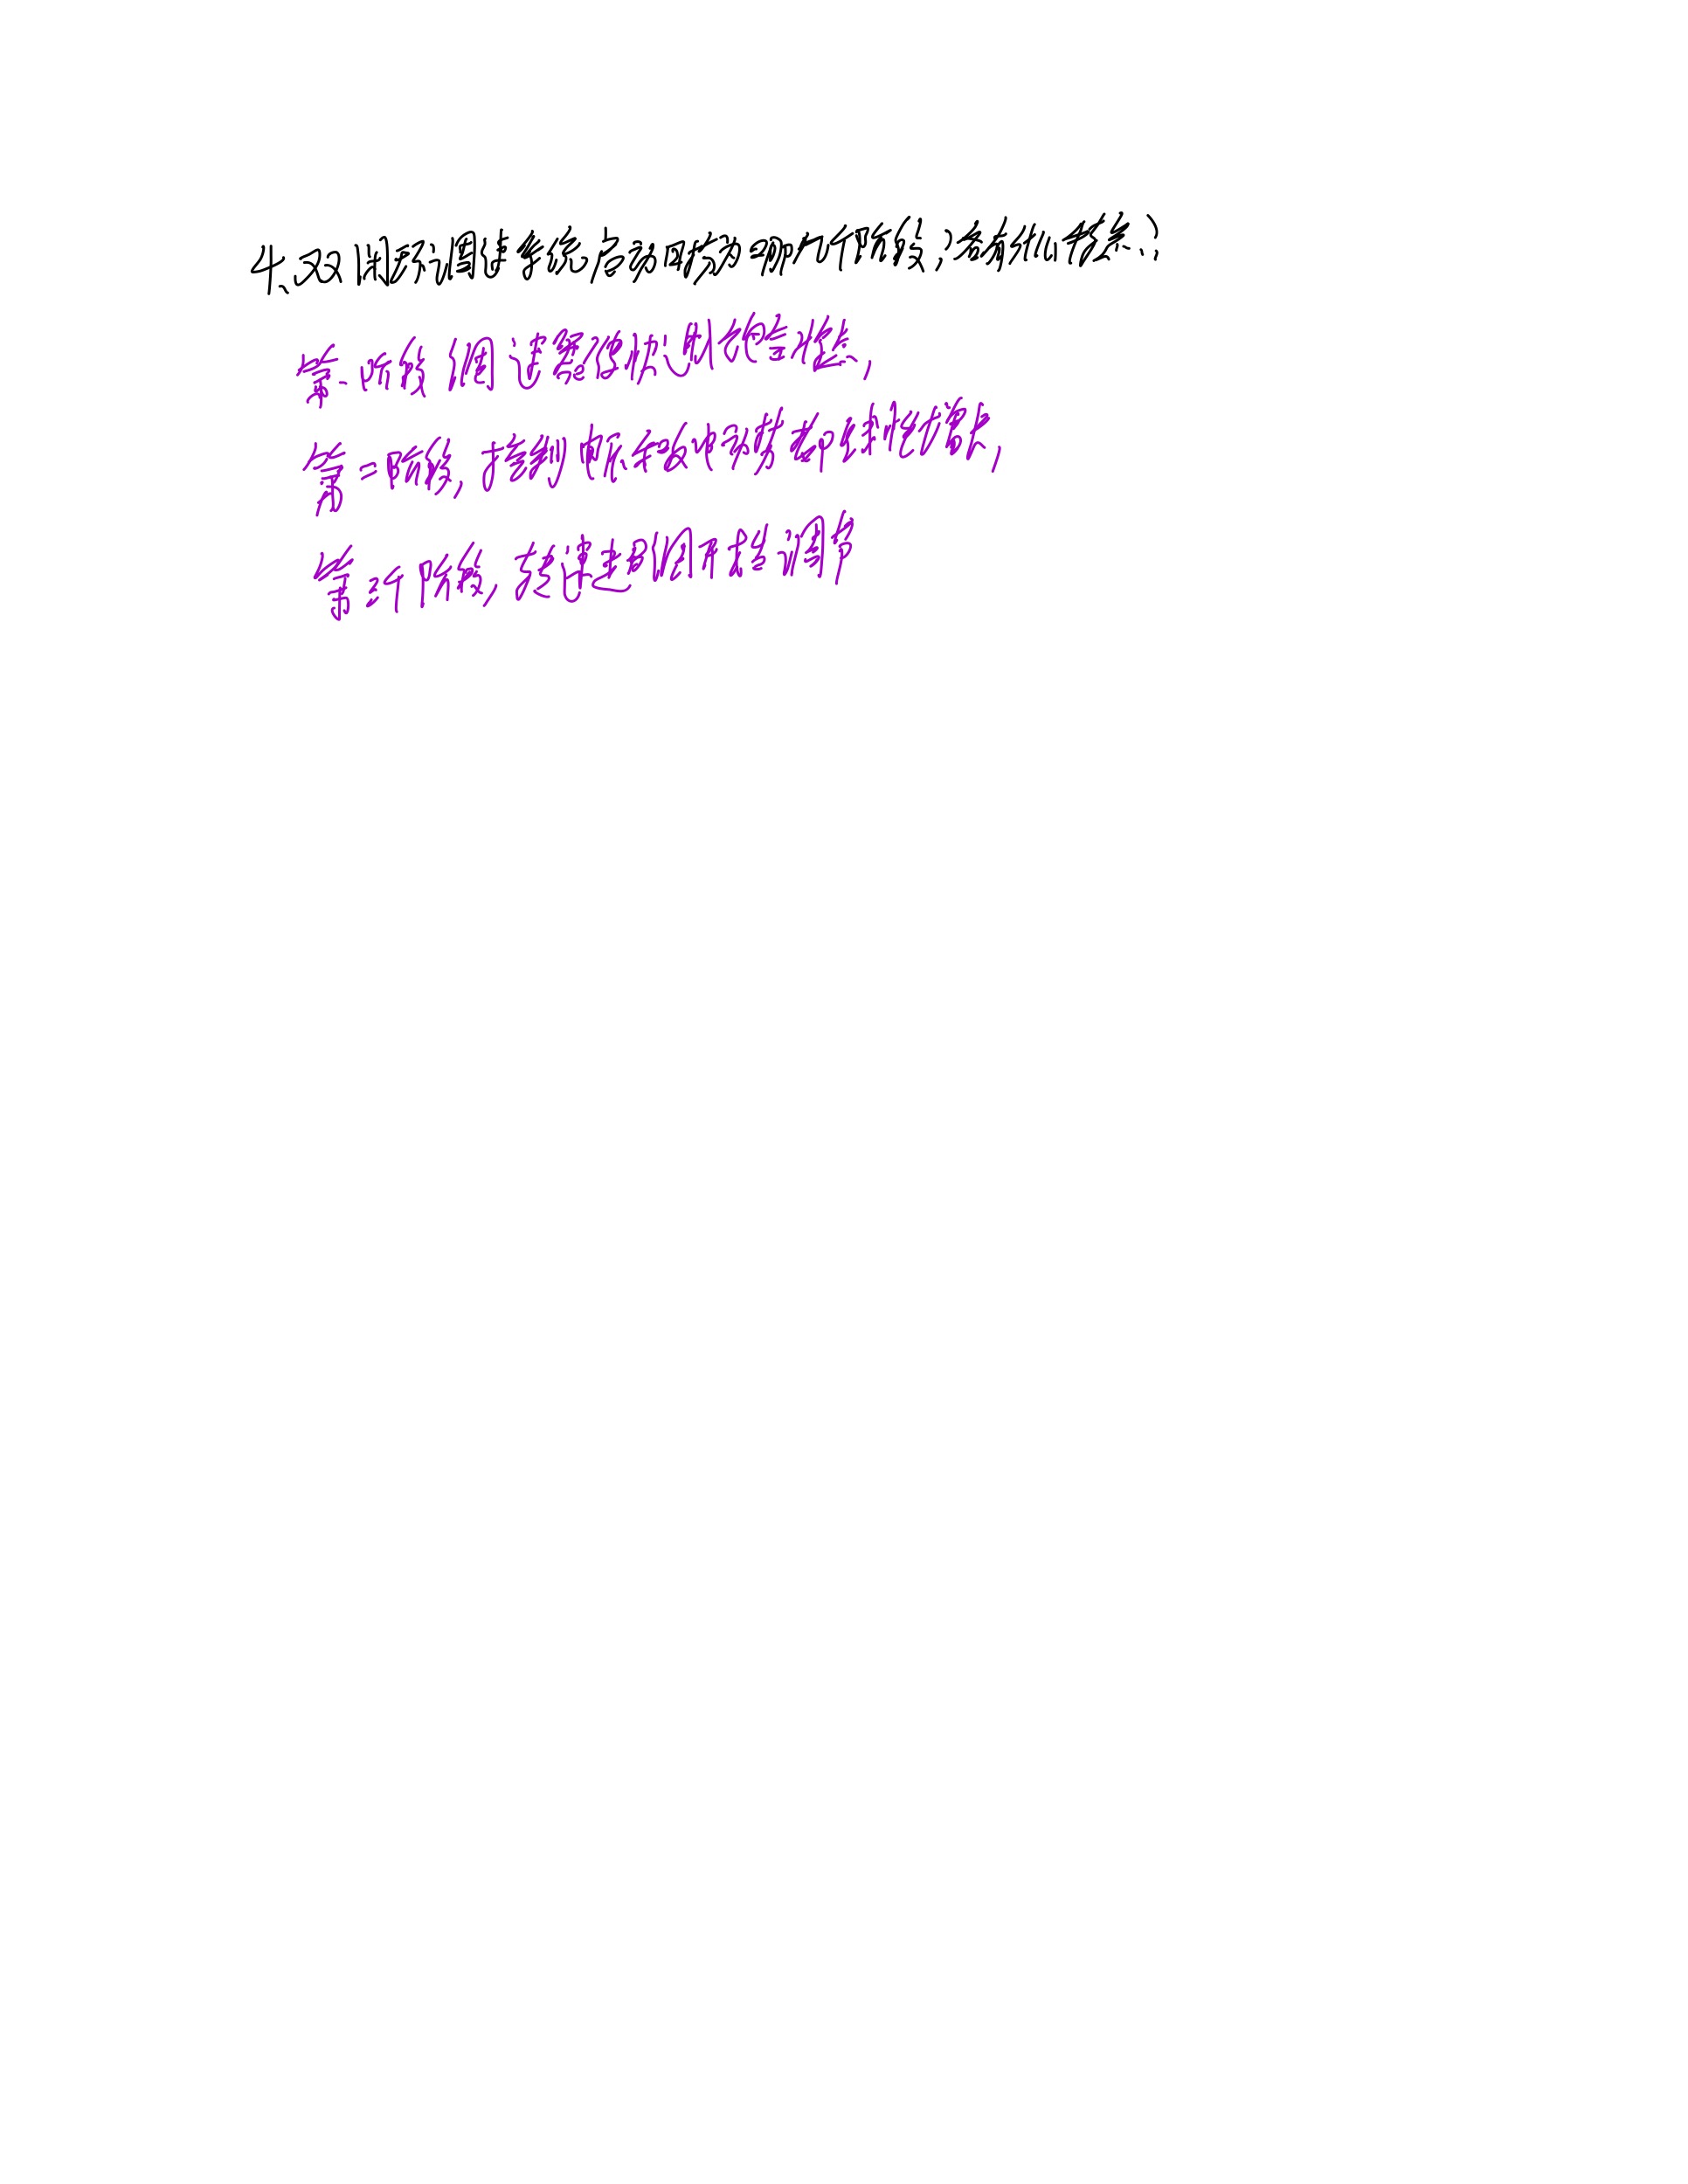 4、双闭环调速系统启动时分为哪几个阶段？各有什么特点？
第一阶段 调速器很快达到饱和状态，
第二阶段，控制电压和反电动势都线性增大，
第三个阶段，转速超调开始调节